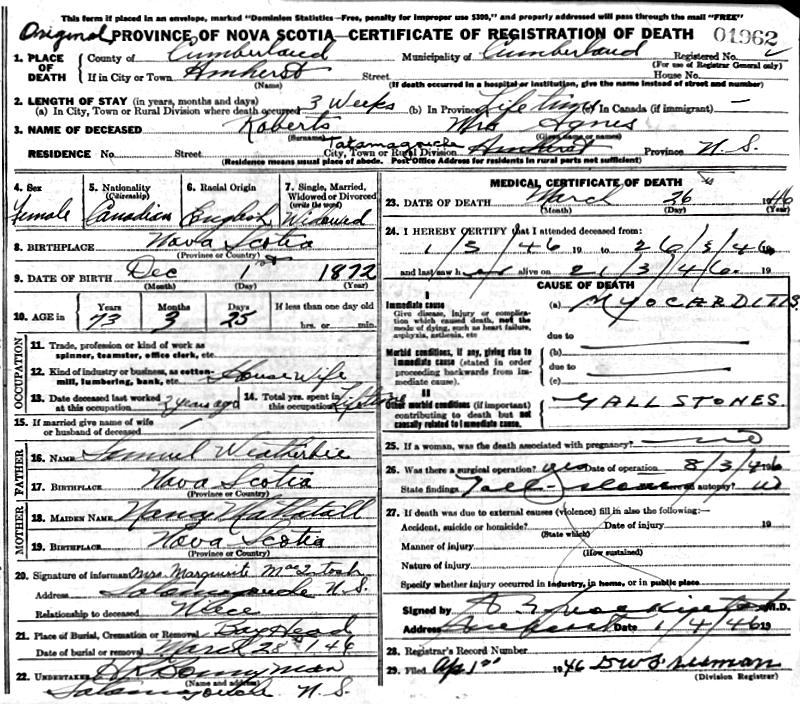 This form if placed in an envelope, marked "Dominion Statistics—Free, penalty for improper use $300," and properly addressed will pass through the mail "FREE"
Original PROVINCE OF NOVA SCOTIA CERTIFICATE OF REGISTRATION OF DEATH 01962
1. PLACE OF DEATH County of Cumberland Municipality of Cumberland Registered No.
(For use of Registrar General only)
If in City or Town Amherst Street House No.
(Name) (If death occurred in a hospital or institution, give the name instead of street and number)
2. LENGTH OF STAY (in years, months and days)
(a) In City, Town or Rural Division where death occurred 3 Weeks (b) In Province Lifetime (c) In Canada (if immigrant) —
3. NAME OF DECEASED Roberts Mrs Agnes
(Surname) (Given name or names)
RESIDENCE No. Street City, Town or Rural Division Tatamagouche Amherst Province N. S.
(Residence means usual place of abode. Post Office Address for residents in rural parts not sufficient)
4. Sex Female
5. Nationality (Citizenship) Canadian
6. Racial Origin English
7. Single, Married, Widowed or Divorced (write the word) Widowed
8. BIRTHPLACE Nova Scotia
(Province or Country)
9. DATE OF BIRTH Dec 1st 1872
(Month) (Day) (Year)
10. AGE in Years 73 Months 3 Days 25 If less than one day old hrs. or min.
OCCUPATION
11. Trade, profession or kind of work as spinner, teamster, office clerk, etc.
12. Kind of industry or business, as cotton-mill, lumbering, bank, etc. House Wife
13. Date deceased last worked at this occupation 2 years ago
14. Total yrs. spent in this occupation Lifetime
15. If married give name of wife or husband of deceased /
FATHER
16. NAME Samuel Weatherbie
17. BIRTHPLACE Nova Scotia
(Province or Country)
MOTHER
18. MAIDEN NAME Nancy
19. BIRTHPLACE Nova Scotia
(Province or Country)
20. Signature of informant Mrs. Marguerite MacIntosh
Address Tatamagouche N. S.
Relationship to deceased Niece
21. Place of Burial, Cremation or Removal Bay Head
Date of burial or removal March 28 / 46
22. UNDERTAKER Bonnyman
(Name and address)
Tatamagouche N. S.
MEDICAL CERTIFICATE OF DEATH
23. DATE OF DEATH March 26 1946
(Month) (Day) (Year)
24. I HEREBY CERTIFY that I attended deceased from:
1/3/46 19 to 26/3/46 19
and last saw her alive on 21/3/46. 19
CAUSE OF DEATH
I
Immediate cause
Give disease, injury or complication which caused death, not the mode of dying, such as heart failure, asphyxia, asthenia, etc.
(a) MYOCARDITIS
due to
Morbid conditions, if any, giving rise to immediate cause (stated in order proceeding backwards from immediate cause).
(b)
due to
(c)
II
Other morbid conditions (if important) contributing to death but not causally related to immediate cause.
GALL STONES.
25. If a woman, was the death associated with pregnancy? no
26. Was there a surgical operation? yes Date of operation 8/3/46
State findings Gall-stones Was there an autopsy? no
27. If death was due to external causes (violence) fill in also the following:—
Accident, suicide or homicide? Date of injury 19
(State which)
Manner of injury
(How sustained)
Nature of injury
Specify whether injury occurred in industry, in home, or in public place
Signed by M.D.
Address Amherst Date 1/4/46 19
28. Registrar's Record Number
29. Filed Apr 1st 1946
(Division Registrar)